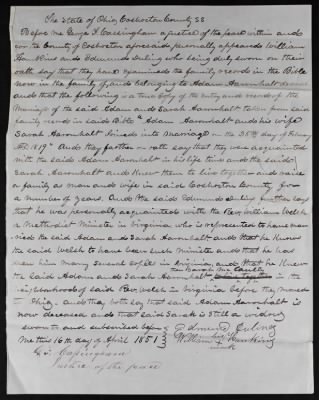 The State of Ohio Coshocton County SS
Before me George F. Cassingham a justice of the peace within and
for the County of Coshocton aforesaid personally appeared William
Hawkins and Edmund Duling who being duly sworn on their
oath say that they have examined the family record in the Bible
now in the family of and belonging to Adam Hawnhalt
and that the following is a true copy of the entry and record of the
Marriage of the said Adam and Sarah Hawnhalt taken from said
family record in said Bible "Adam Hawnhalt and his wife
Sarah Hawnhalt Joined into Marriage on the 25th of Febuary
AD 1819" And they further on oath say that they were acquainted
with the said Adam Hawnhalt in his life time and the said
Sarah Hawnhalt and Knew them to live together and raise
a family as man and wife in said Coshocton County for
a number of years. And the said Edmund Duling further says
that he was personally acquainted with the Rev William Welch
a Methodist Minister in Virginia who is represented to have mar-
ried the said Adam and Sarah Hawnhalt and that he Knows
the said Welch to have been such Minister and that he has
seen him marry several coples in Virginia, and that he Knew
the said Adam and Sarah Hawnhalt in the
neighborhood of said Rev. Welch in Virginia before they moved
to Ohio. And they both say that said Adam Hawnhalt is
now deceased and that said Sarah is still a widow
sworn to and subscribed before Edmund Duling
me this 16th day of April 1851 William his Hawkins
mark
G. F. Cassingham
Justice of the peace